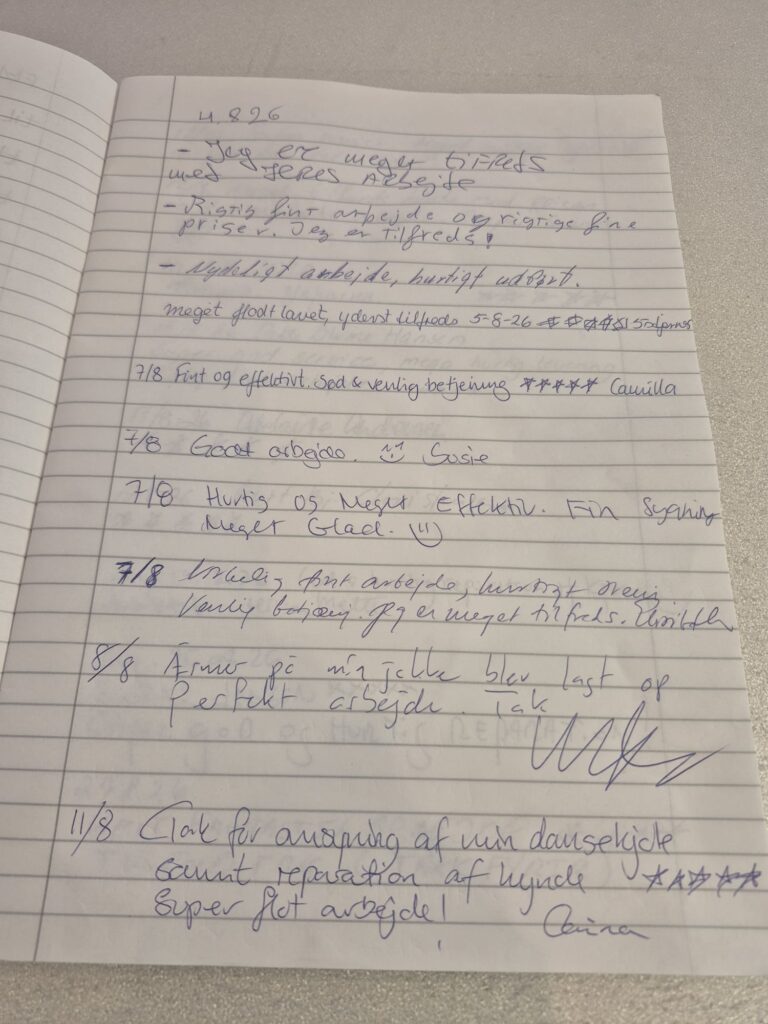 4.8 26
- Jeg er meget tilfreds
med JERES Arbejde
- Rigtig fint arbejde og rigtige fine
priser. Jeg er tilfreds!
- Nydeligt arbejde, hurtigt udført.
meget flodt lavet, yderst tilfreds 5-8-26 ☆☆☆☆☆ 5 stjerner
7/8 Fint og effektivt. Sød & venlig betjening ☆☆☆☆☆ Camilla
7/8 Godt arbejde. Susie
7/8 Hurtig og Meget Effektiv. Fin Syening
Meget Glad.
7/8 fint arbejde, hurtigt
Venlig betjeni. Jeg er meget tilfreds.
8/8 Ærmer på min jakke blev lagt op
Perfekt arbejde. Tak
11/8 Tak for ansyning af min dansekjole
samt reparation af hynde ☆☆☆☆☆
Super flot arbejde!